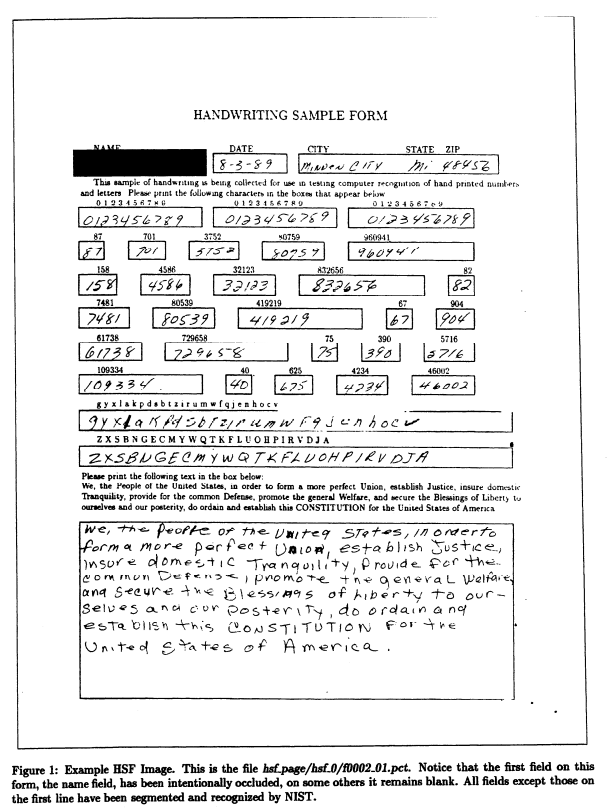 HANDWRITING SAMPLE FORM
NAME DATE CITY STATE ZIP
8-3-89 MINDEN CITY Mi 48456
This sample of handwriting is being collected for use in testing computer recognition of hand printed numbers
and letters Please print the following characters in the boxes that appear below
0123456789 0123456789 0123456789
0123456789 0123456789 0123456789
87 701 3752 80759 960941
87 701 3752 80759 960941
158 4586 32123 832656 82
158 4586 32123 832656 82
7481 80539 419219 67 904
7481 80539 419219 67 904
61738 729658 75 390 5716
61738 729658 75 390 5716
109334 40 625 4234 46002
109334 40 625 4234 46002
gyxlakpdsbtzirumwfqjenhocv
gyxlakpdsbtzirumwfqjenhocv
ZXSBNGECMYWQTKFLUOHPIRVDJA
ZXSBNGECMYWQTKFLUOHPIRVDJA
Please print the following text in the box below:
We, the People of the United States, in order to form a more perfect Union, establish Justice, insure domestic
Tranquility, provide for the common Defense, promote the general Welfare, and secure the Blessings of Liberty to
ourselves and our posterity, do ordain and establish this CONSTITUTION for the United States of America
We, the People of the United States, in order to
form a more perfect Union, establish Justice,
insure domestic Tranquility, Provide for the
common Defense, promote the general Welfare,
and secure the Blessings of Liberty to our-
selves and our posterity, do ordain and
establish this CONSTITUTION for the
United States of America.
Figure 1: Example HSF Image. This is the file hsf_page/hsf_0/f0002_01.pct. Notice that the first field on this
form, the name field, has been intentionally occluded, on some others it remains blank. All fields except those on
the first line have been segmented and recognized by NIST.